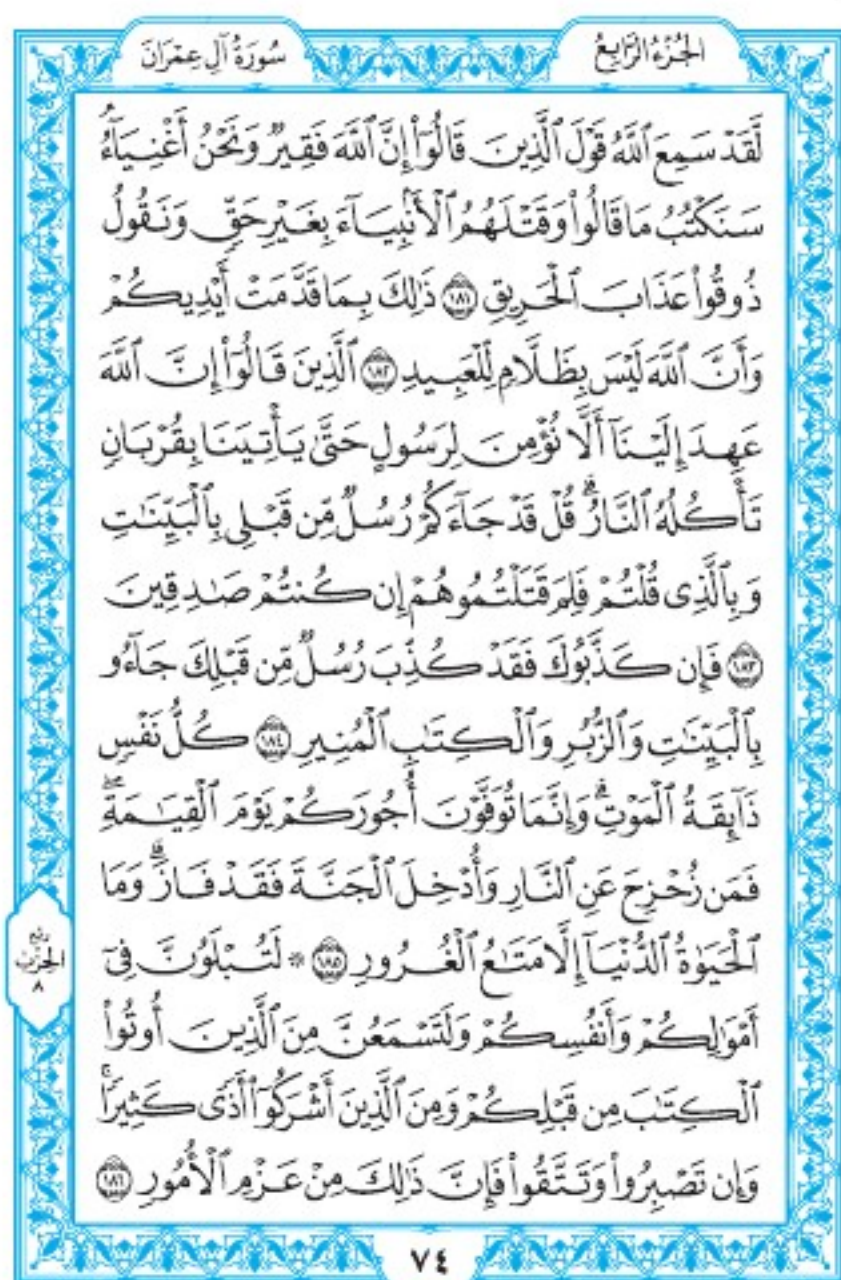 الجُزْءُ الرَّابِعُ
سُورَةُ آلِ عِمْرَانَ
لَّقَدْ سَمِعَ ٱللَّهُ قَوْلَ ٱلَّذِينَ قَالُوٓا۟ إِنَّ ٱللَّهَ فَقِيرٌ وَنَحْنُ أَغْنِيَآءُ ۘ
سَنَكْتُبُ مَا قَالُوا۟ وَقَتْلَهُمُ ٱلْأَنۢبِيَآءَ بِغَيْرِ حَقٍّ وَنَقُولُ
ذُوقُوا۟ عَذَابَ ٱلْحَرِيقِ ١٨١ ذَٰلِكَ بِمَا قَدَّمَتْ أَيْدِيكُمْ
وَأَنَّ ٱللَّهَ لَيْسَ بِظَلَّامٍ لِّلْعَبِيدِ ١٨٢ ٱلَّذِينَ قَالُوٓا۟ إِنَّ ٱللَّهَ
عَهِدَ إِلَيْنَآ أَلَّا نُؤْمِنَ لِرَسُولٍ حَتَّىٰ يَأْتِيَنَا بِقُرْبَانٍ
تَأْكُلُهُ ٱلنَّارُ ۗ قُلْ قَدْ جَآءَكُمْ رُسُلٌ مِّن قَبْلِى بِٱلْبَيِّنَٰتِ
وَبِٱلَّذِى قُلْتُمْ فَلِمَ قَتَلْتُمُوهُمْ إِن كُنتُمْ صَٰدِقِينَ
١٨٣ فَإِن كَذَّبُوكَ فَقَدْ كُذِّبَ رُسُلٌ مِّن قَبْلِكَ جَآءُو
بِٱلْبَيِّنَٰتِ وَٱلزُّبُرِ وَٱلْكِتَٰبِ ٱلْمُنِيرِ ١٨٤ كُلُّ نَفْسٍ
ذَآئِقَةُ ٱلْمَوْتِ ۗ وَإِنَّمَا تُوَفَّوْنَ أُجُورَكُمْ يَوْمَ ٱلْقِيَٰمَةِ ۖ
فَمَن زُحْزِحَ عَنِ ٱلنَّارِ وَأُدْخِلَ ٱلْجَنَّةَ فَقَدْ فَازَ ۗ وَمَا
ٱلْحَيَوٰةُ ٱلدُّنْيَآ إِلَّا مَتَٰعُ ٱلْغُرُورِ ١٨٥ ۞ لَتُبْلَوُنَّ فِىٓ
أَمْوَٰلِكُمْ وَأَنفُسِكُمْ وَلَتَسْمَعُنَّ مِنَ ٱلَّذِينَ أُوتُوا۟
ٱلْكِتَٰبَ مِن قَبْلِكُمْ وَمِنَ ٱلَّذِينَ أَشْرَكُوٓا۟ أَذًى كَثِيرًا ۚ
وَإِن تَصْبِرُوا۟ وَتَتَّقُوا۟ فَإِنَّ ذَٰلِكَ مِنْ عَزْمِ ٱلْأُمُورِ ١٨٦
ربع
الحزب
٨
٧٤